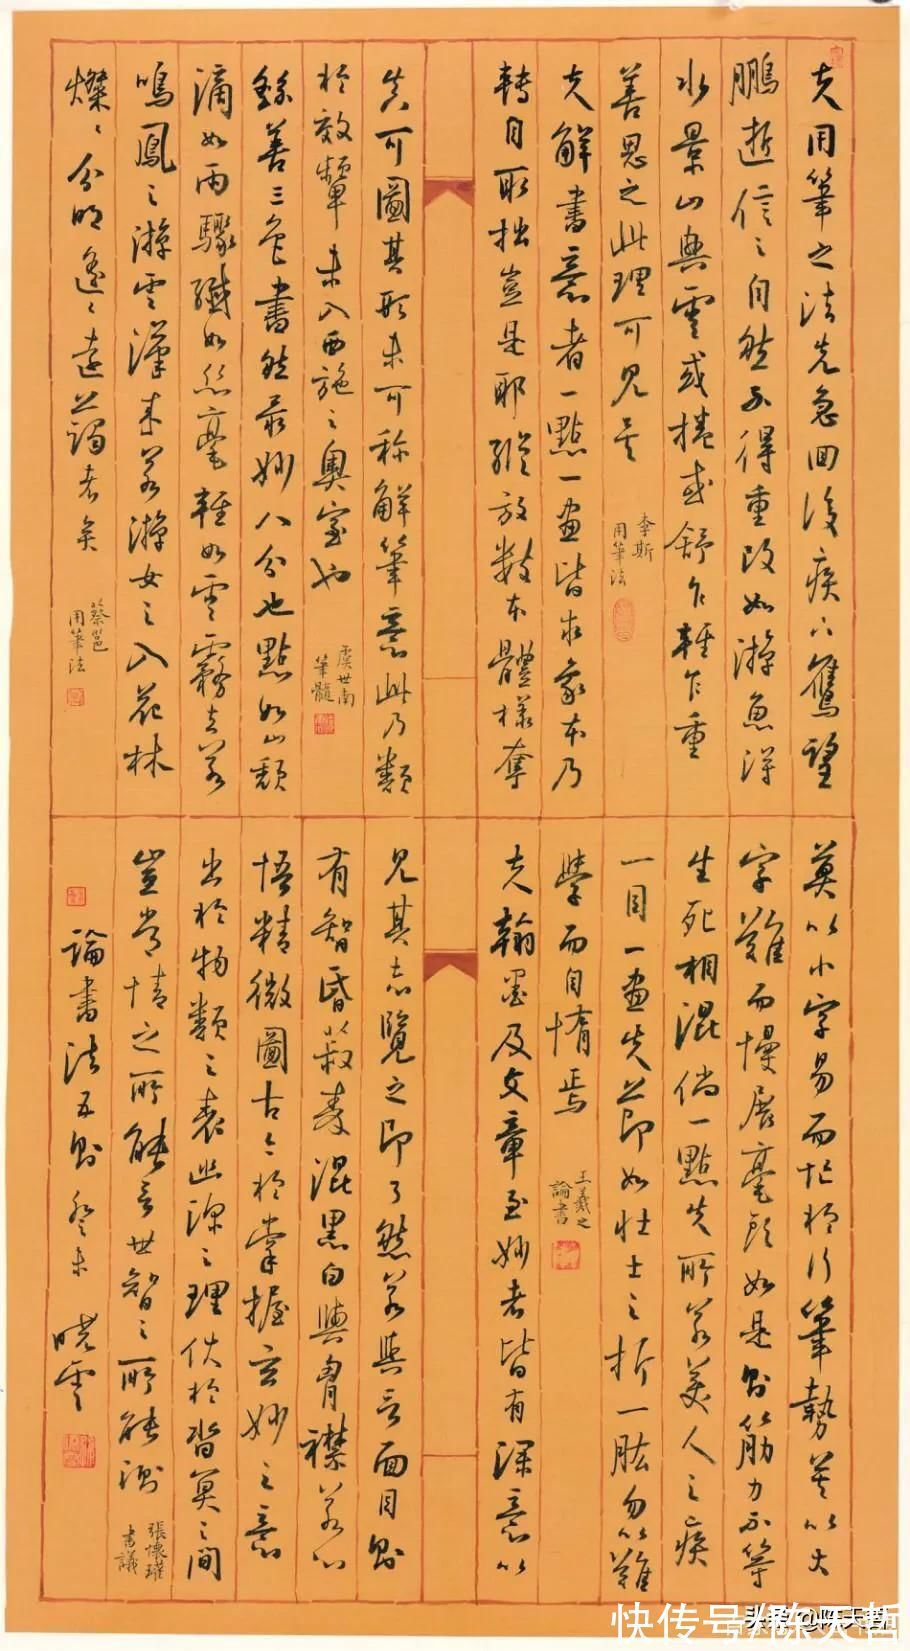 夫用筆之法先急回後疾下鷹望
鵬逝信之自然不得重改如游魚得
水景山興雲或捲或舒乍輕乍重
善思之此理可見矣
李斯
用筆法
夫解書意者一點一畫皆求象本乃
轉自取拙豈是耶縱放類本體樣奪
真可圖其形未可稱解筆意此乃類
於效顰未入西施之奧室也
虞世南
筆髓
繇善三色書然最妙八分也點如山頹
滴如雨驟纖如絲毫輕如雲霧去若
鳴鳳之游雲漢來若游女之入花林
燦燦分明遙遙遠矚者矣
蔡邕
用筆法
莫以小字易而忙於行筆勢莫以大
字難而慢展毫頭如是則筋力不等
生死相混倘一點失所若美人之病
一目一畫失節如壯士之折一肱勿以難
學而自惰焉
王羲之
論書
夫翰墨及文章至妙者皆有深意以
見其志覽之即了然若與言面目則
有智昏菽麥混黑白與胸襟若心
悟精微圖古今於掌握玄妙之意
出於物類之表幽深之理伏於杳冥之間
豈常情之所能言世智之所能測
張懷瓘
書議
論書法五則癸未曉雲
快传号/陈天哲